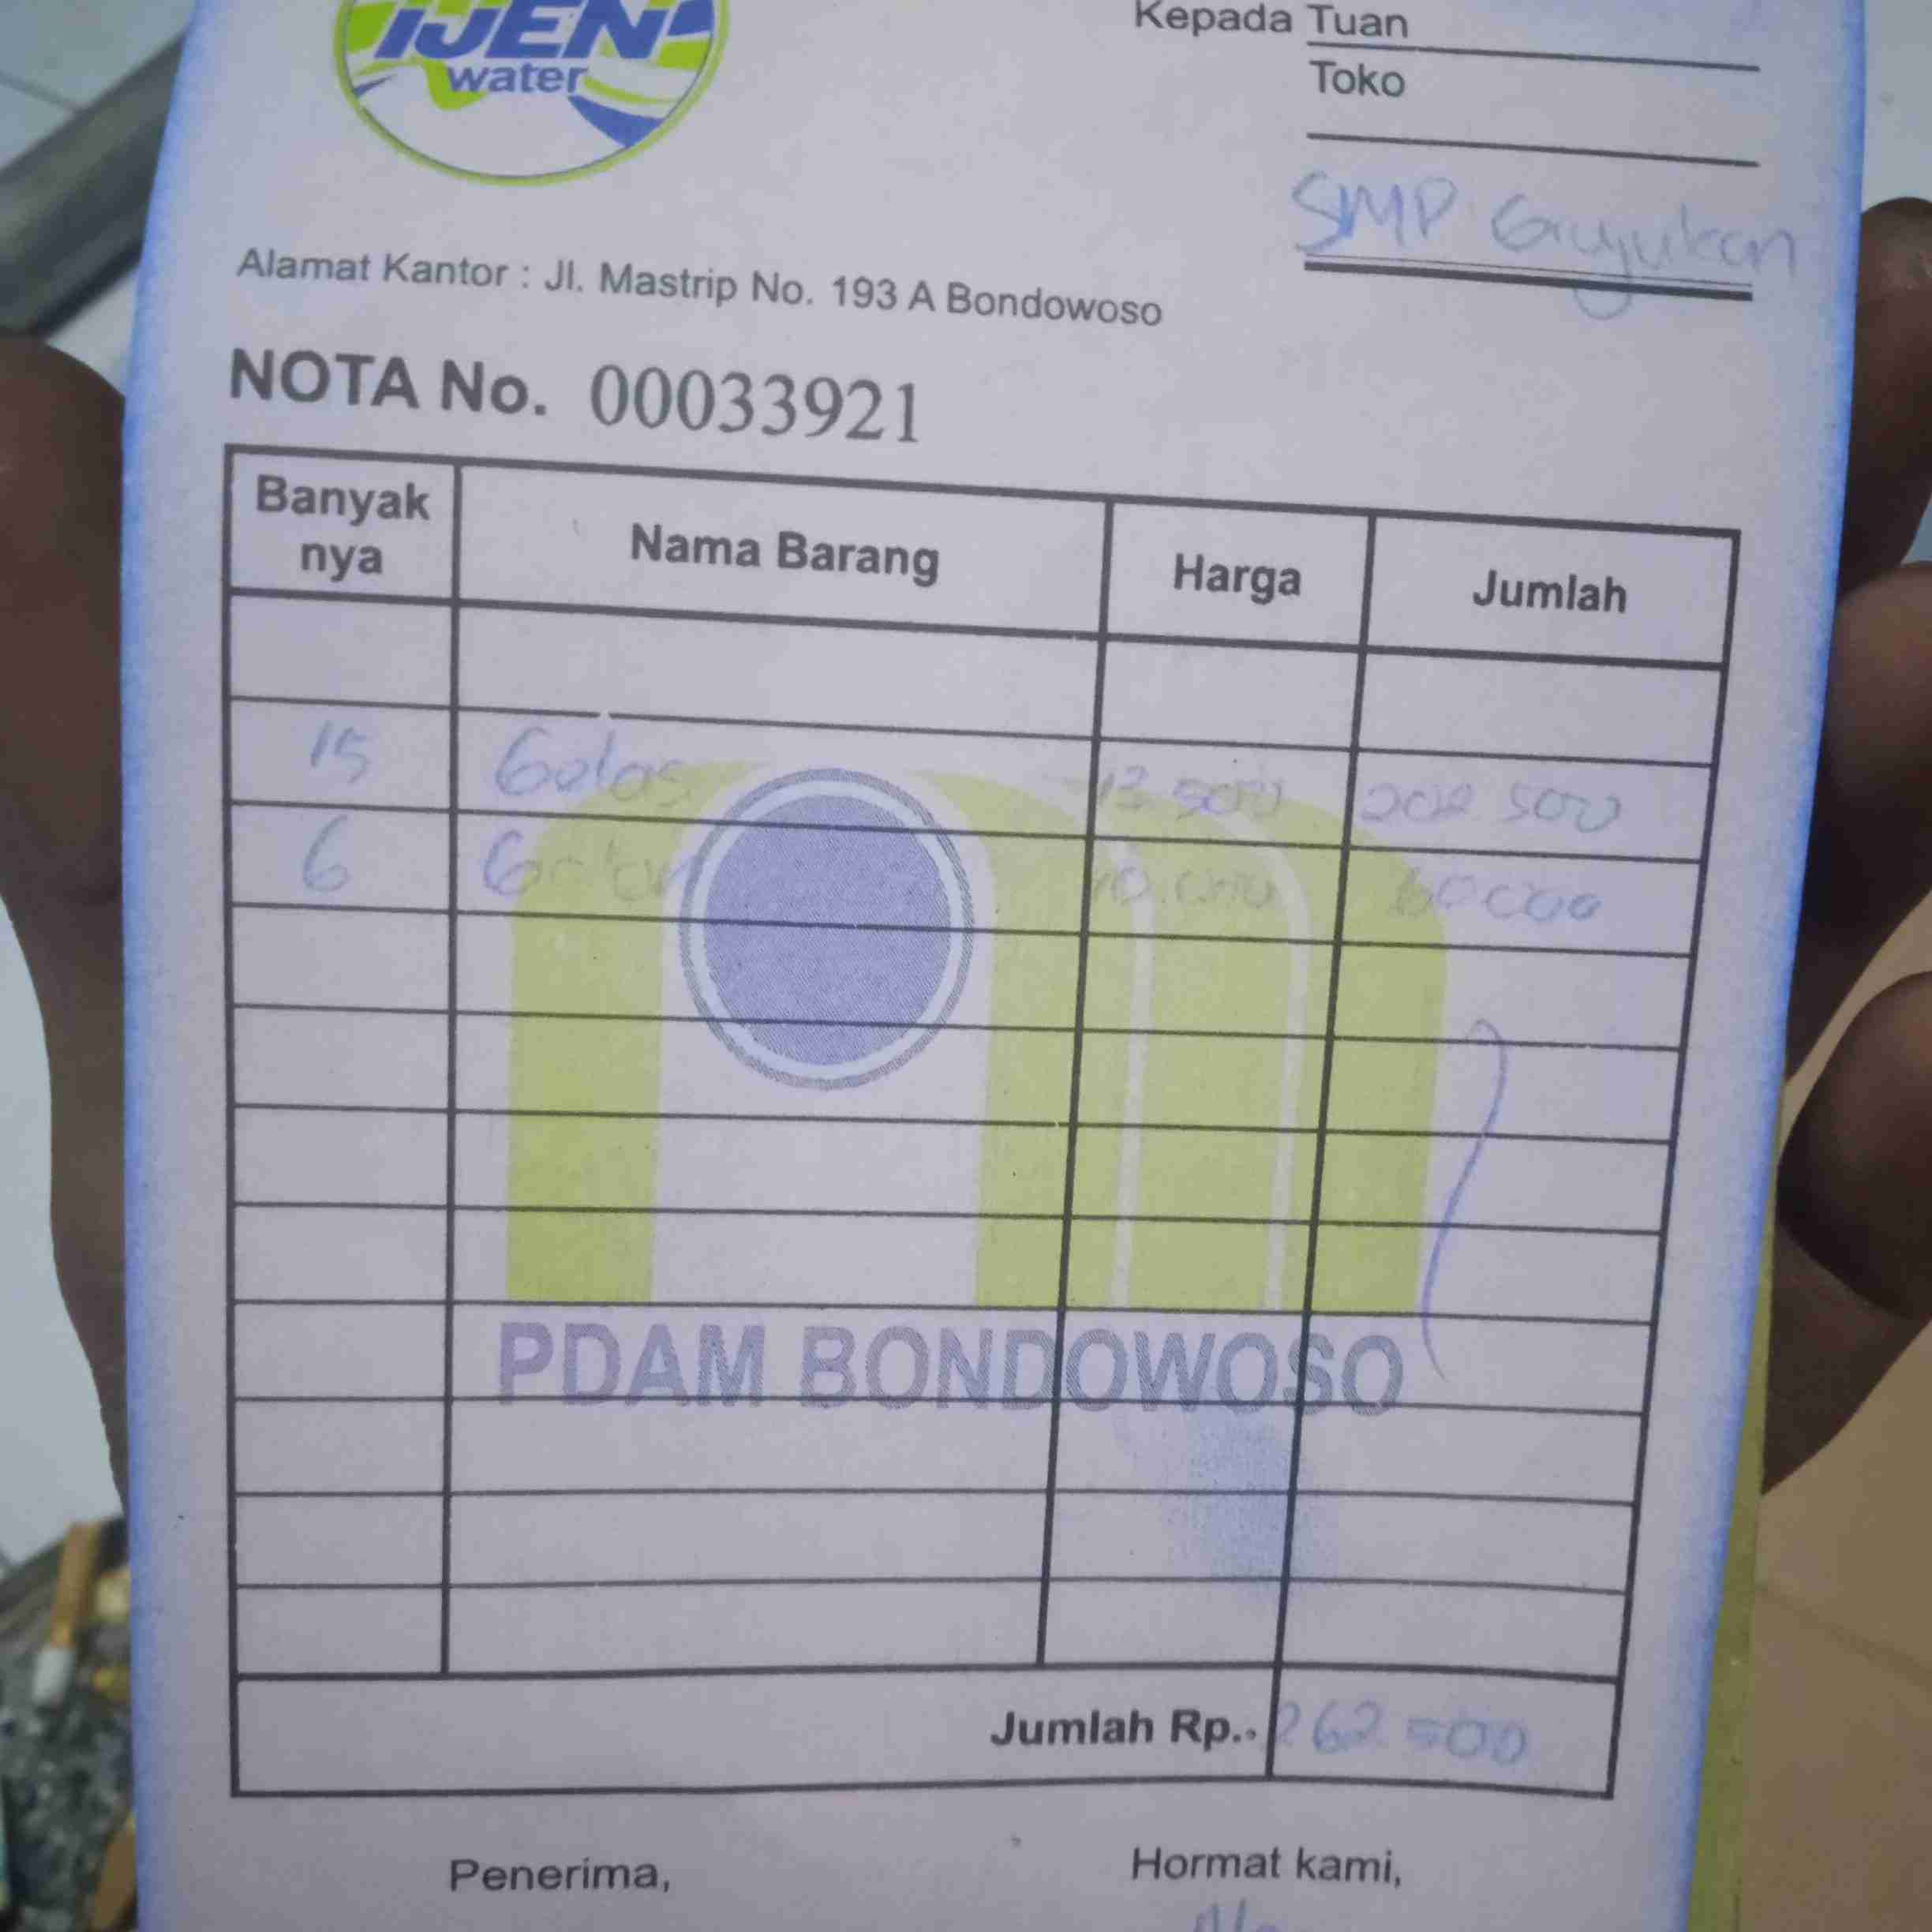 IJEN
water
Kepada Tuan
Toko
SMP Grujukan
Alamat Kantor : Jl. Mastrip No. 193 A Bondowoso
NOTA No. 00033921
Banyak nya Nama Barang Harga Jumlah
15 Gelas 13.500 202 500
6 10.000 60000
PDAM BONDOWOSO
Jumlah Rp.. 262 500
Penerima, Hormat kami,